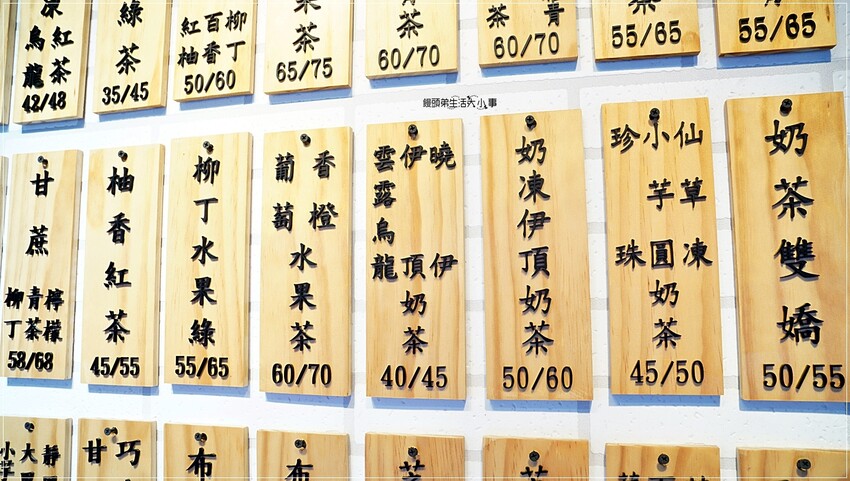 紅茶
烏龍
42/48
綠茶
35/45
柳丁
百香
紅柚
50/60
茶
65/75
茶
60/70
茶
60/70
茶
55/65
55/65
饅頭弟生活大小事
甘蔗
檸檬
青茶
柳丁
58/68
柚香紅茶
45/55
柳丁水果綠
55/65
香橙
葡萄
水果茶
60/70
曉伊
伊頂
雲露烏龍
奶茶
40/45
奶凍伊頂奶茶
50/60
仙草凍
小芋圓
珍珠
奶茶
45/50
奶茶雙嬌
50/55
靜
大
小
巧
甘
布
布